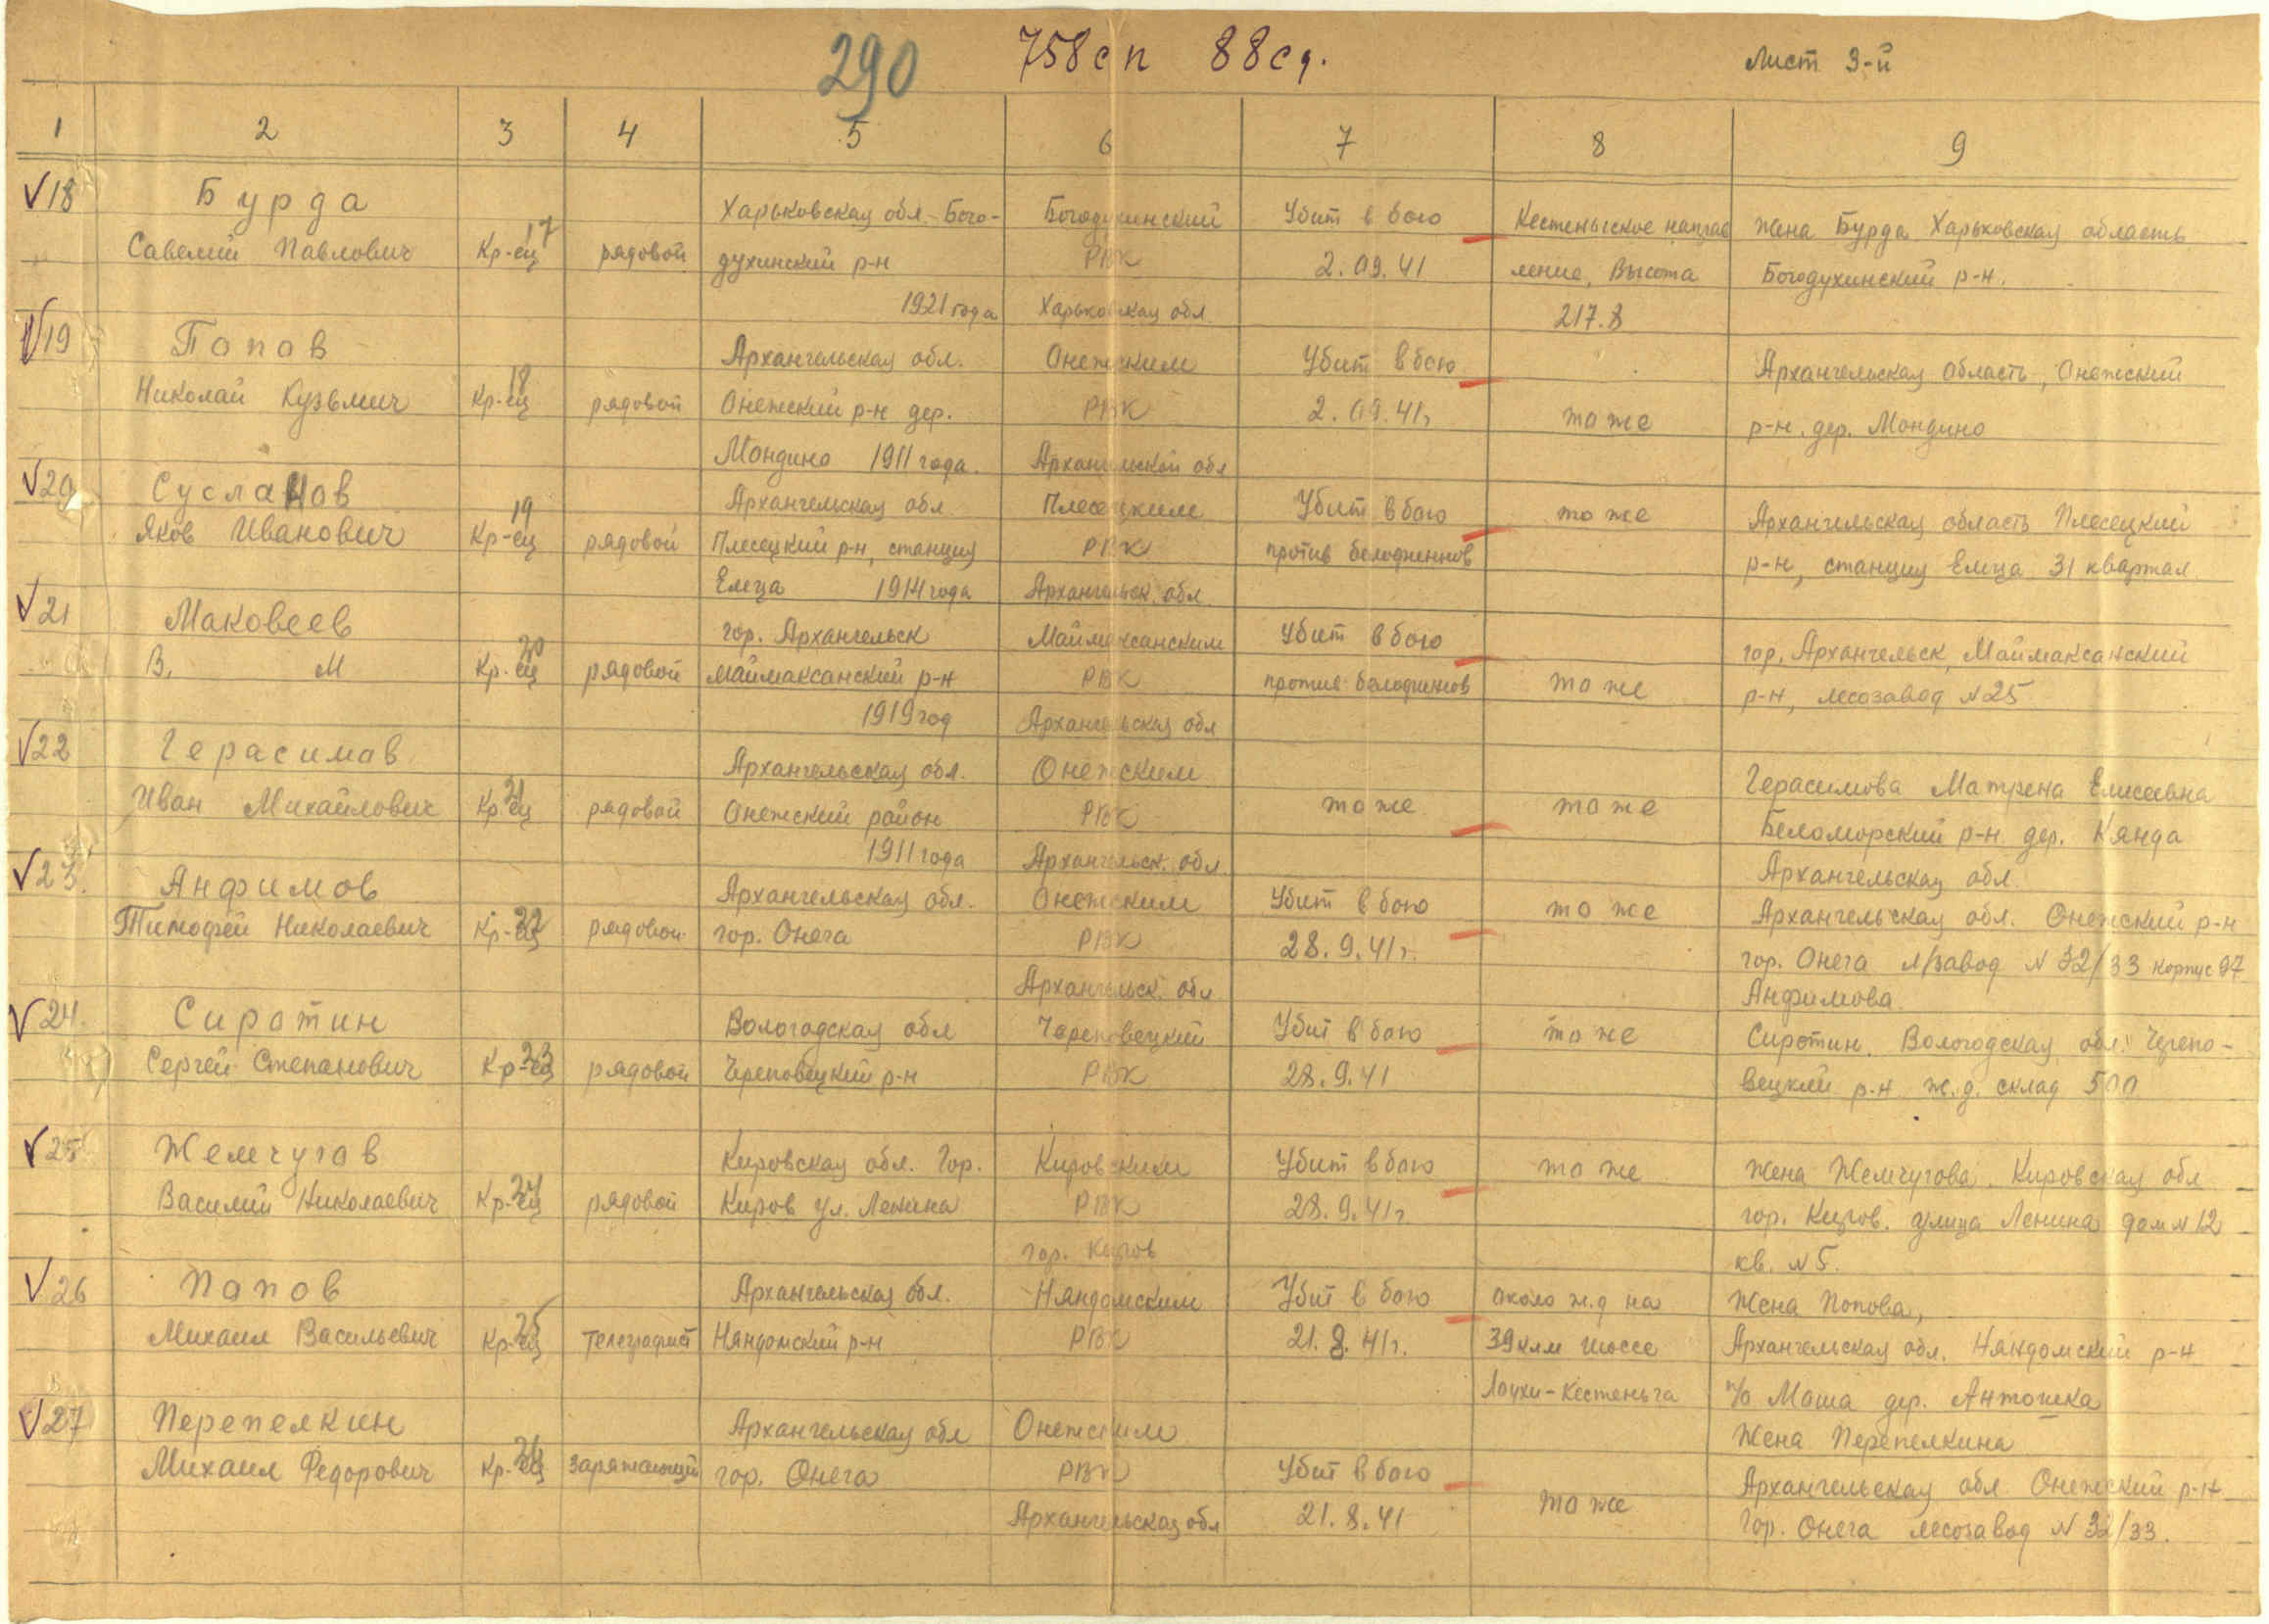 290 758 сп 88 сд. Лист 3-й
1 2 3 4 5 6 7 8 9
18 Бурда Харьковская обл. Бого- Богодухинский Убит в бою Кестеньгское направ Жена Бурда Харьковская область
Савелий Павлович Кр-ец 17 рядовой духинский р-н РВК 2.09.41 ление, Высота Богодухинский р-н.
1921 года Харьковская обл. 217.8
19 Попов Архангельская обл. Онежским Убит в бою Архангельская область, Онежский
Николай Кузьмич Кр-ец 18 рядовой Онежский р-н дер. РВК 2.09.41г то же р-н. дер. Мондино
Мондино 1911 года. Архангельской обл
20 Сусланов Архангельская обл Плесецким Убит в бою то же Архангельская область Плесецкий
Яков Иванович Кр-ец 19 рядовой Плесецкий р-н, станция РВК против белофиннов р-н, станция Емца 31 квартал
Емца 1914 года Архангельск. обл.
21 Маковеев гор. Архангельск Маймаксанским Убит в бою гор. Архангельск, Маймаксанский
В. М Кр-ец 20 рядовой Маймаксанский р-н РВК против белофиннов то же р-н, лесозавод №25
1919 год Архангельская обл
22 Герасимов Архангельская обл. Онежским Герасимова Матрена Елисеевна
Иван Михайлович Кр-ец 21 рядовой Онежский район РВК то же то же Беломорский р-н дер. Кянда
1911 года Архангельск. обл. Архангельская обл
23. Анфимов Архангельская обл. Онежским Убит в бою то же Архангельская обл. Онежский р-н
Тимофей Николаевич Кр-ец 22 рядовой гор. Онега РВК 28.9.41г. гор. Онега л/завод № 32/33 корпус 97
Архангельск. обл Анфимова.
24. Сиротин Вологодская обл Череповецкий Убит в бою то же Сиротин. Вологодская обл. Черепо-
Сергей Степанович Кр-ец 23 рядовой Череповецкий р-н РВК 28.9.41 вецкий р-н ж.д. склад 500
25 Жемчугов Кировская обл. Гор. Кировским Убит в бою то же Жена Жемчугова. Кировская обл
Василий Николаевич Кр-ец 24 рядовой Киров ул. Ленина РВК 28.9.41г гор. Киров. улица Ленина дом №12
гор. Киров кв. №5.
26 Попов Архангельская обл. Няндомским Убит в бою около ж.д на Жена Попова,
Михаил Васильевич Кр-ец 25 телеграфист Няндомский р-н РВК 21.8.41г. 39 клм шоссе Архангельская обл. Няндомский р-н
Лоухи-Кестеньга п/о Моша дер. Антошка
27 Перепелкин Архангельская обл Онежским Жена Перепелкина
Михаил Федорович Кр-ец заряжающий гор. Онега РВК Убит в бою Архангельская обл Онежский р-н
Архангельская обл 21.8.41 то же Гор. Онега лесозавод № 32/33.